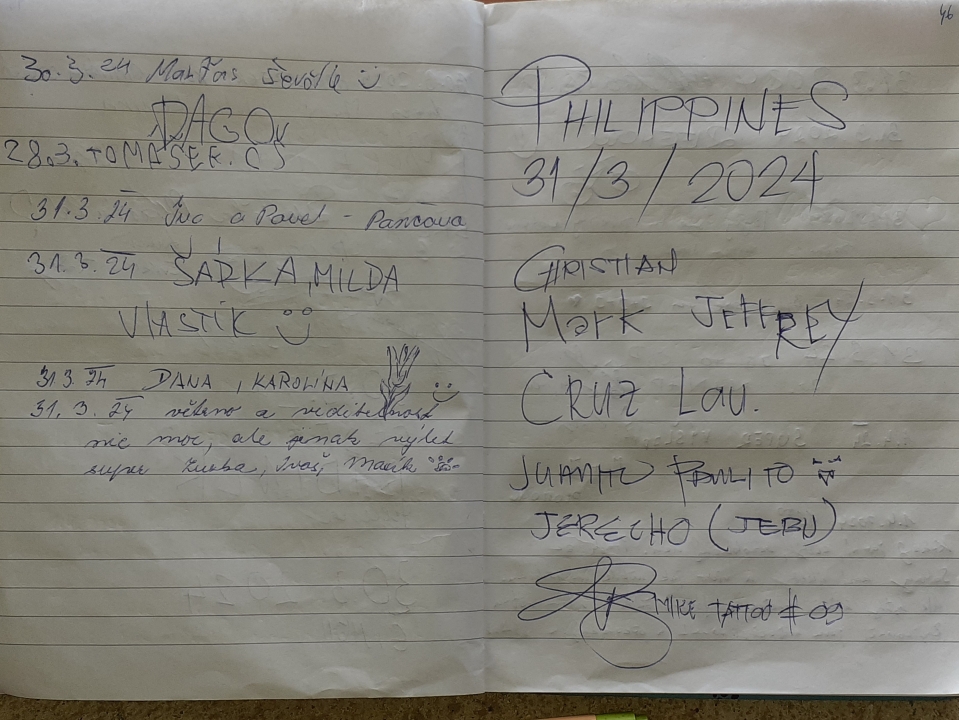 30.3.24 Matýas Ševčík
DAGO
28.3. TOMÁŠEK. CS
31.3.24 Iva a Pavel - Pančava
31.3.24 ŠÁRKA, MILDA
VLASTÍK
31.3.24 DANA, KAROLÍNA
31.3.24 větrno a viditelnost
nic moc, ale jinak výlet
super
46
PHILIPPINES
31/3/2024
CHRISTIAN
Mark JEFFREY
CRUZ Lau.
JUANITO PAULITO
JERECHO (JEBU)
MIKE TATTOO #09